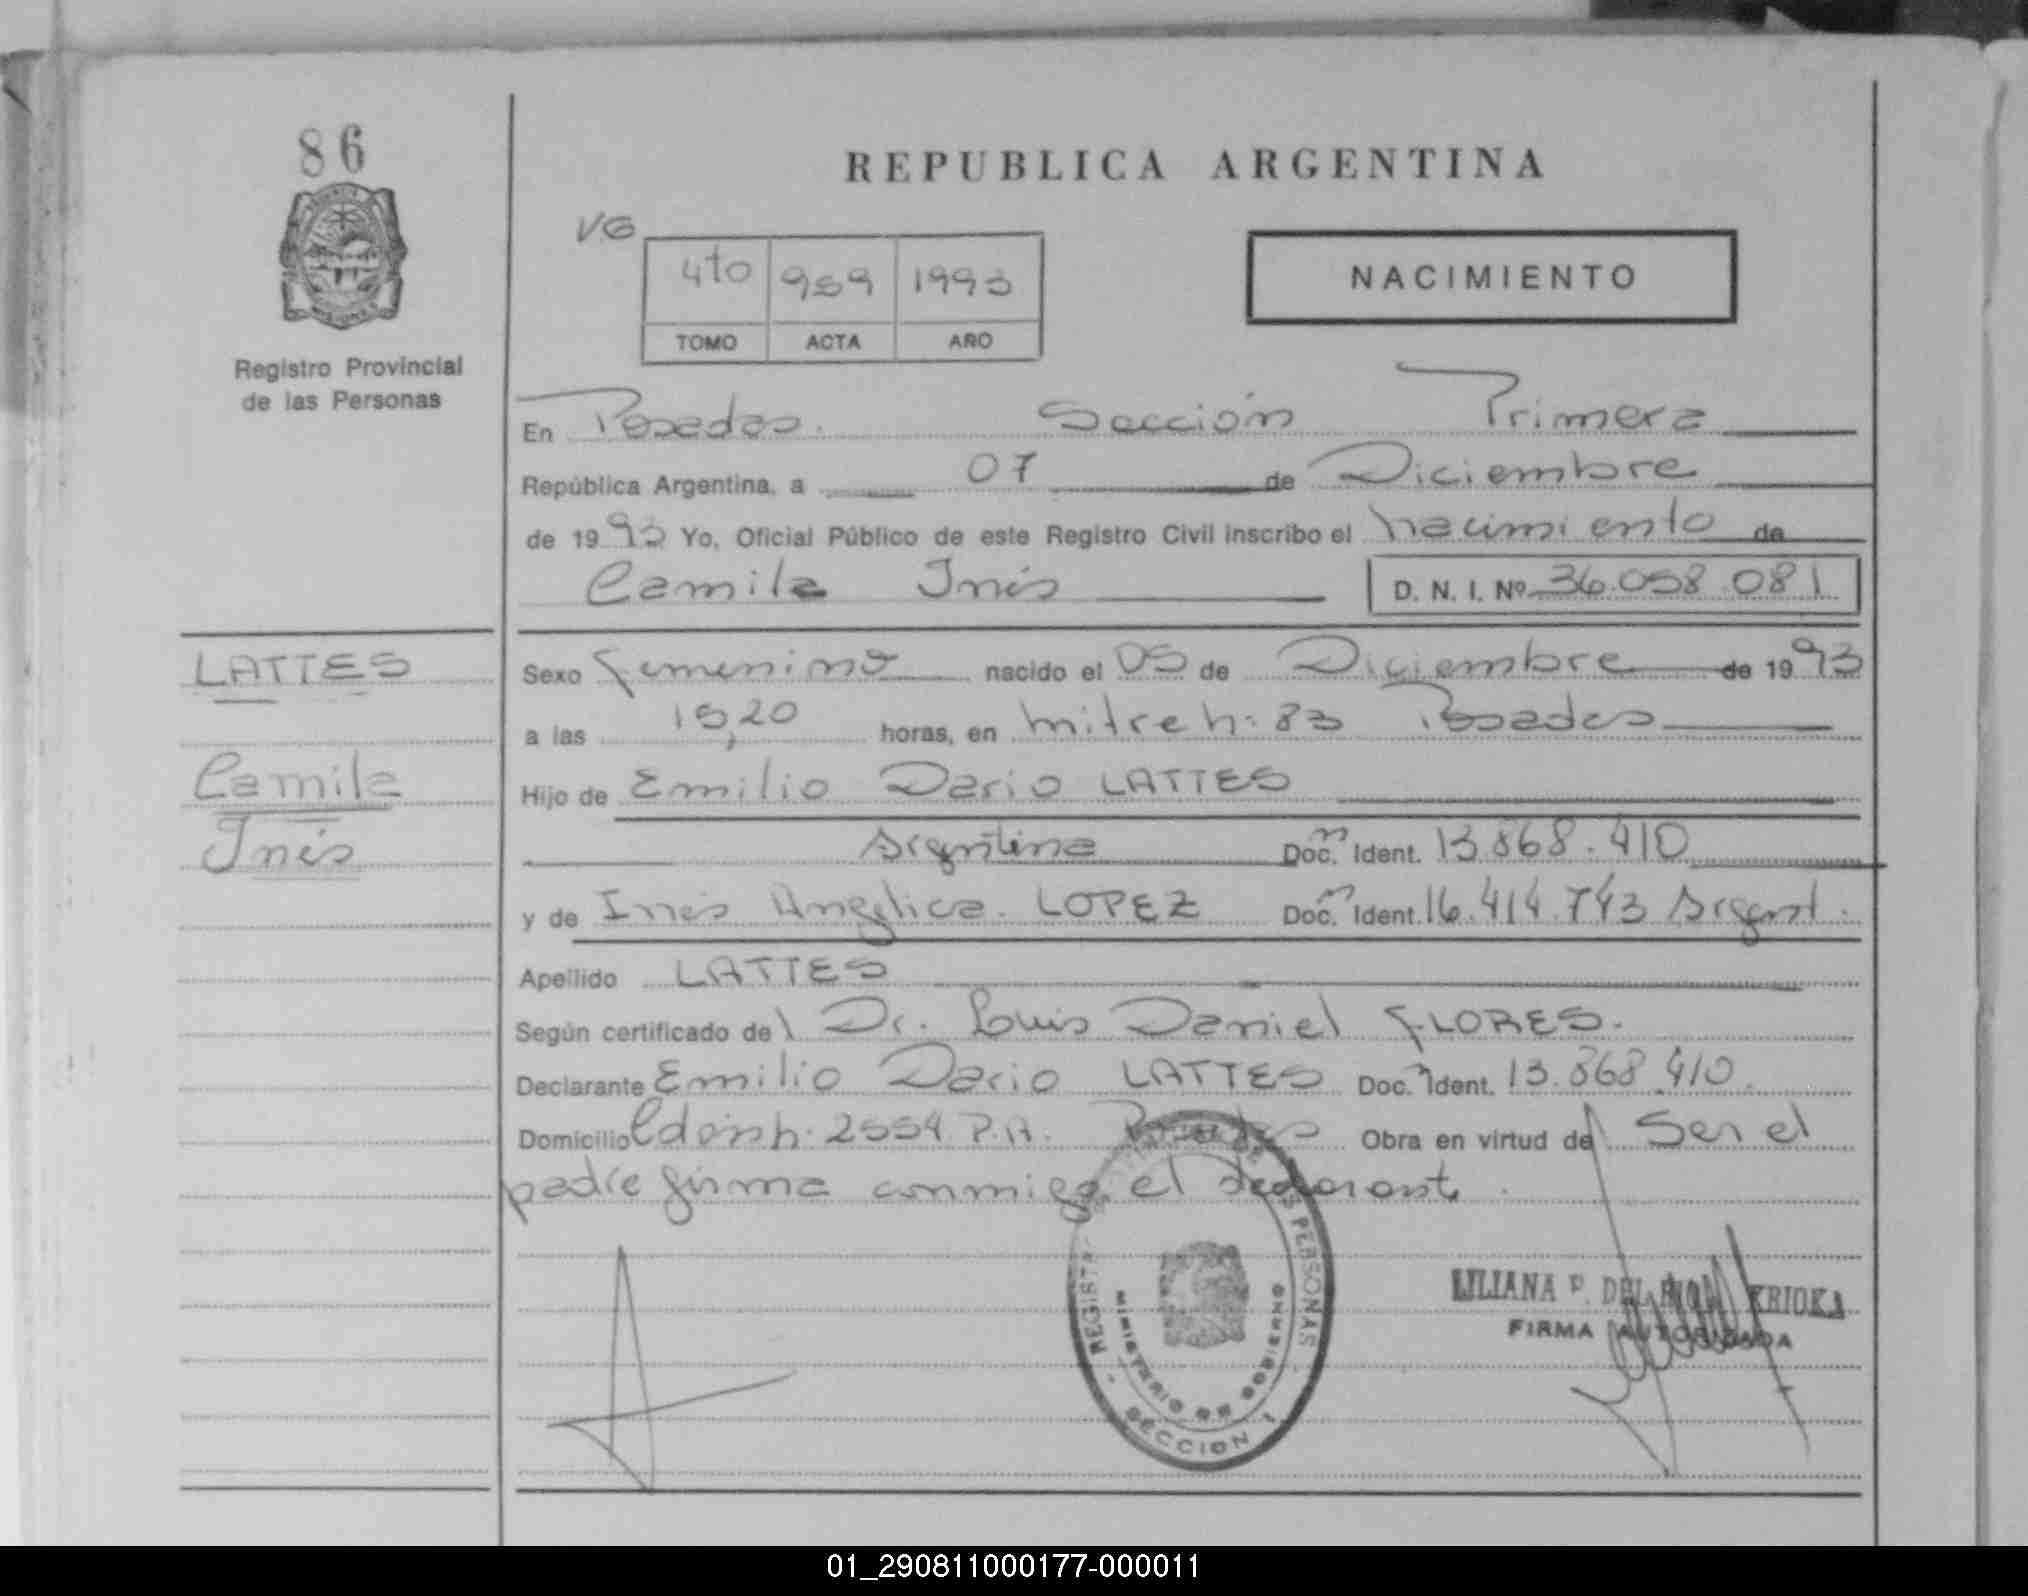 86
Registro Provincial
de las Personas
REPUBLICA ARGENTINA
VG
4to 959 1993
TOMO ACTA AÑO
NACIMIENTO
En Posadas. Sección Primera
República Argentina, a 07 de Diciembre
de 1993 Yo, Oficial Público de este Registro Civil inscribo el nacimiento de
Camila Inés D. N. I. Nº 36.058.081
LATTES
Camila
Inés
Sexo femenino nacido el 05 de Diciembre de 1993
a las 15,20 horas, en mitre n: 83 Posadas
Hijo de Emilio Dario LATTES
Argentina Doc. Ident. 13.868.410
y de Inés Angelica LOPEZ Doc. Ident. 16.414.743 Argent.
Apellido LATTES
Según certificado del Dr. Luis Daniel FLORES.
Declarante Emilio Dario LATTES Doc. Ident. 13.868.410.
Domicilio 2554 P.A. Posadas Obra en virtud de Ser el
padre firma conmigo el declarante.
REGISTRO DE LAS PERSONAS
MINISTERIO DE GOBIERNO
SECCION I
LILIANA P. DEL
FIRMA AUTORIZADA
01_290811000177-000011